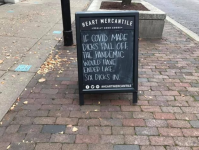 HEART MERCANTILE
IF COVID MADE
DICKS FALL OFF
THE PANDEMIC
WOULD HAVE
ENDED LIKE
SIX DICKS IN.
@HEARTMERCANTILE